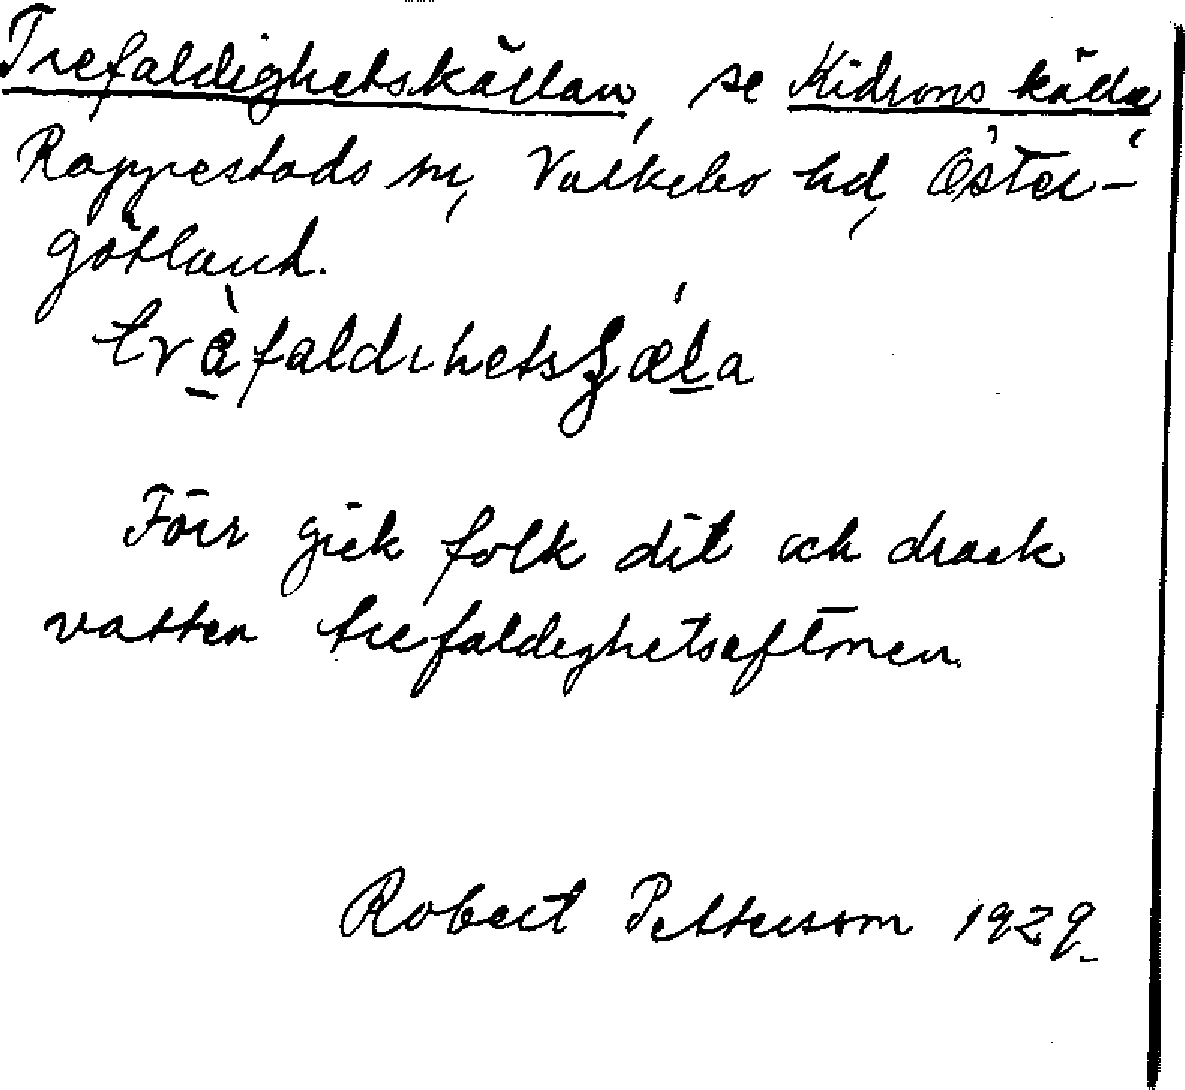 Trefaldighetskällan, se Kidrons källa,
Rappestads sn, Valkebo hd, Öster-
götland.
Förr gick folk dit och drack
vatten trefaldighetsaftnen.
Robert Petterson 1929.